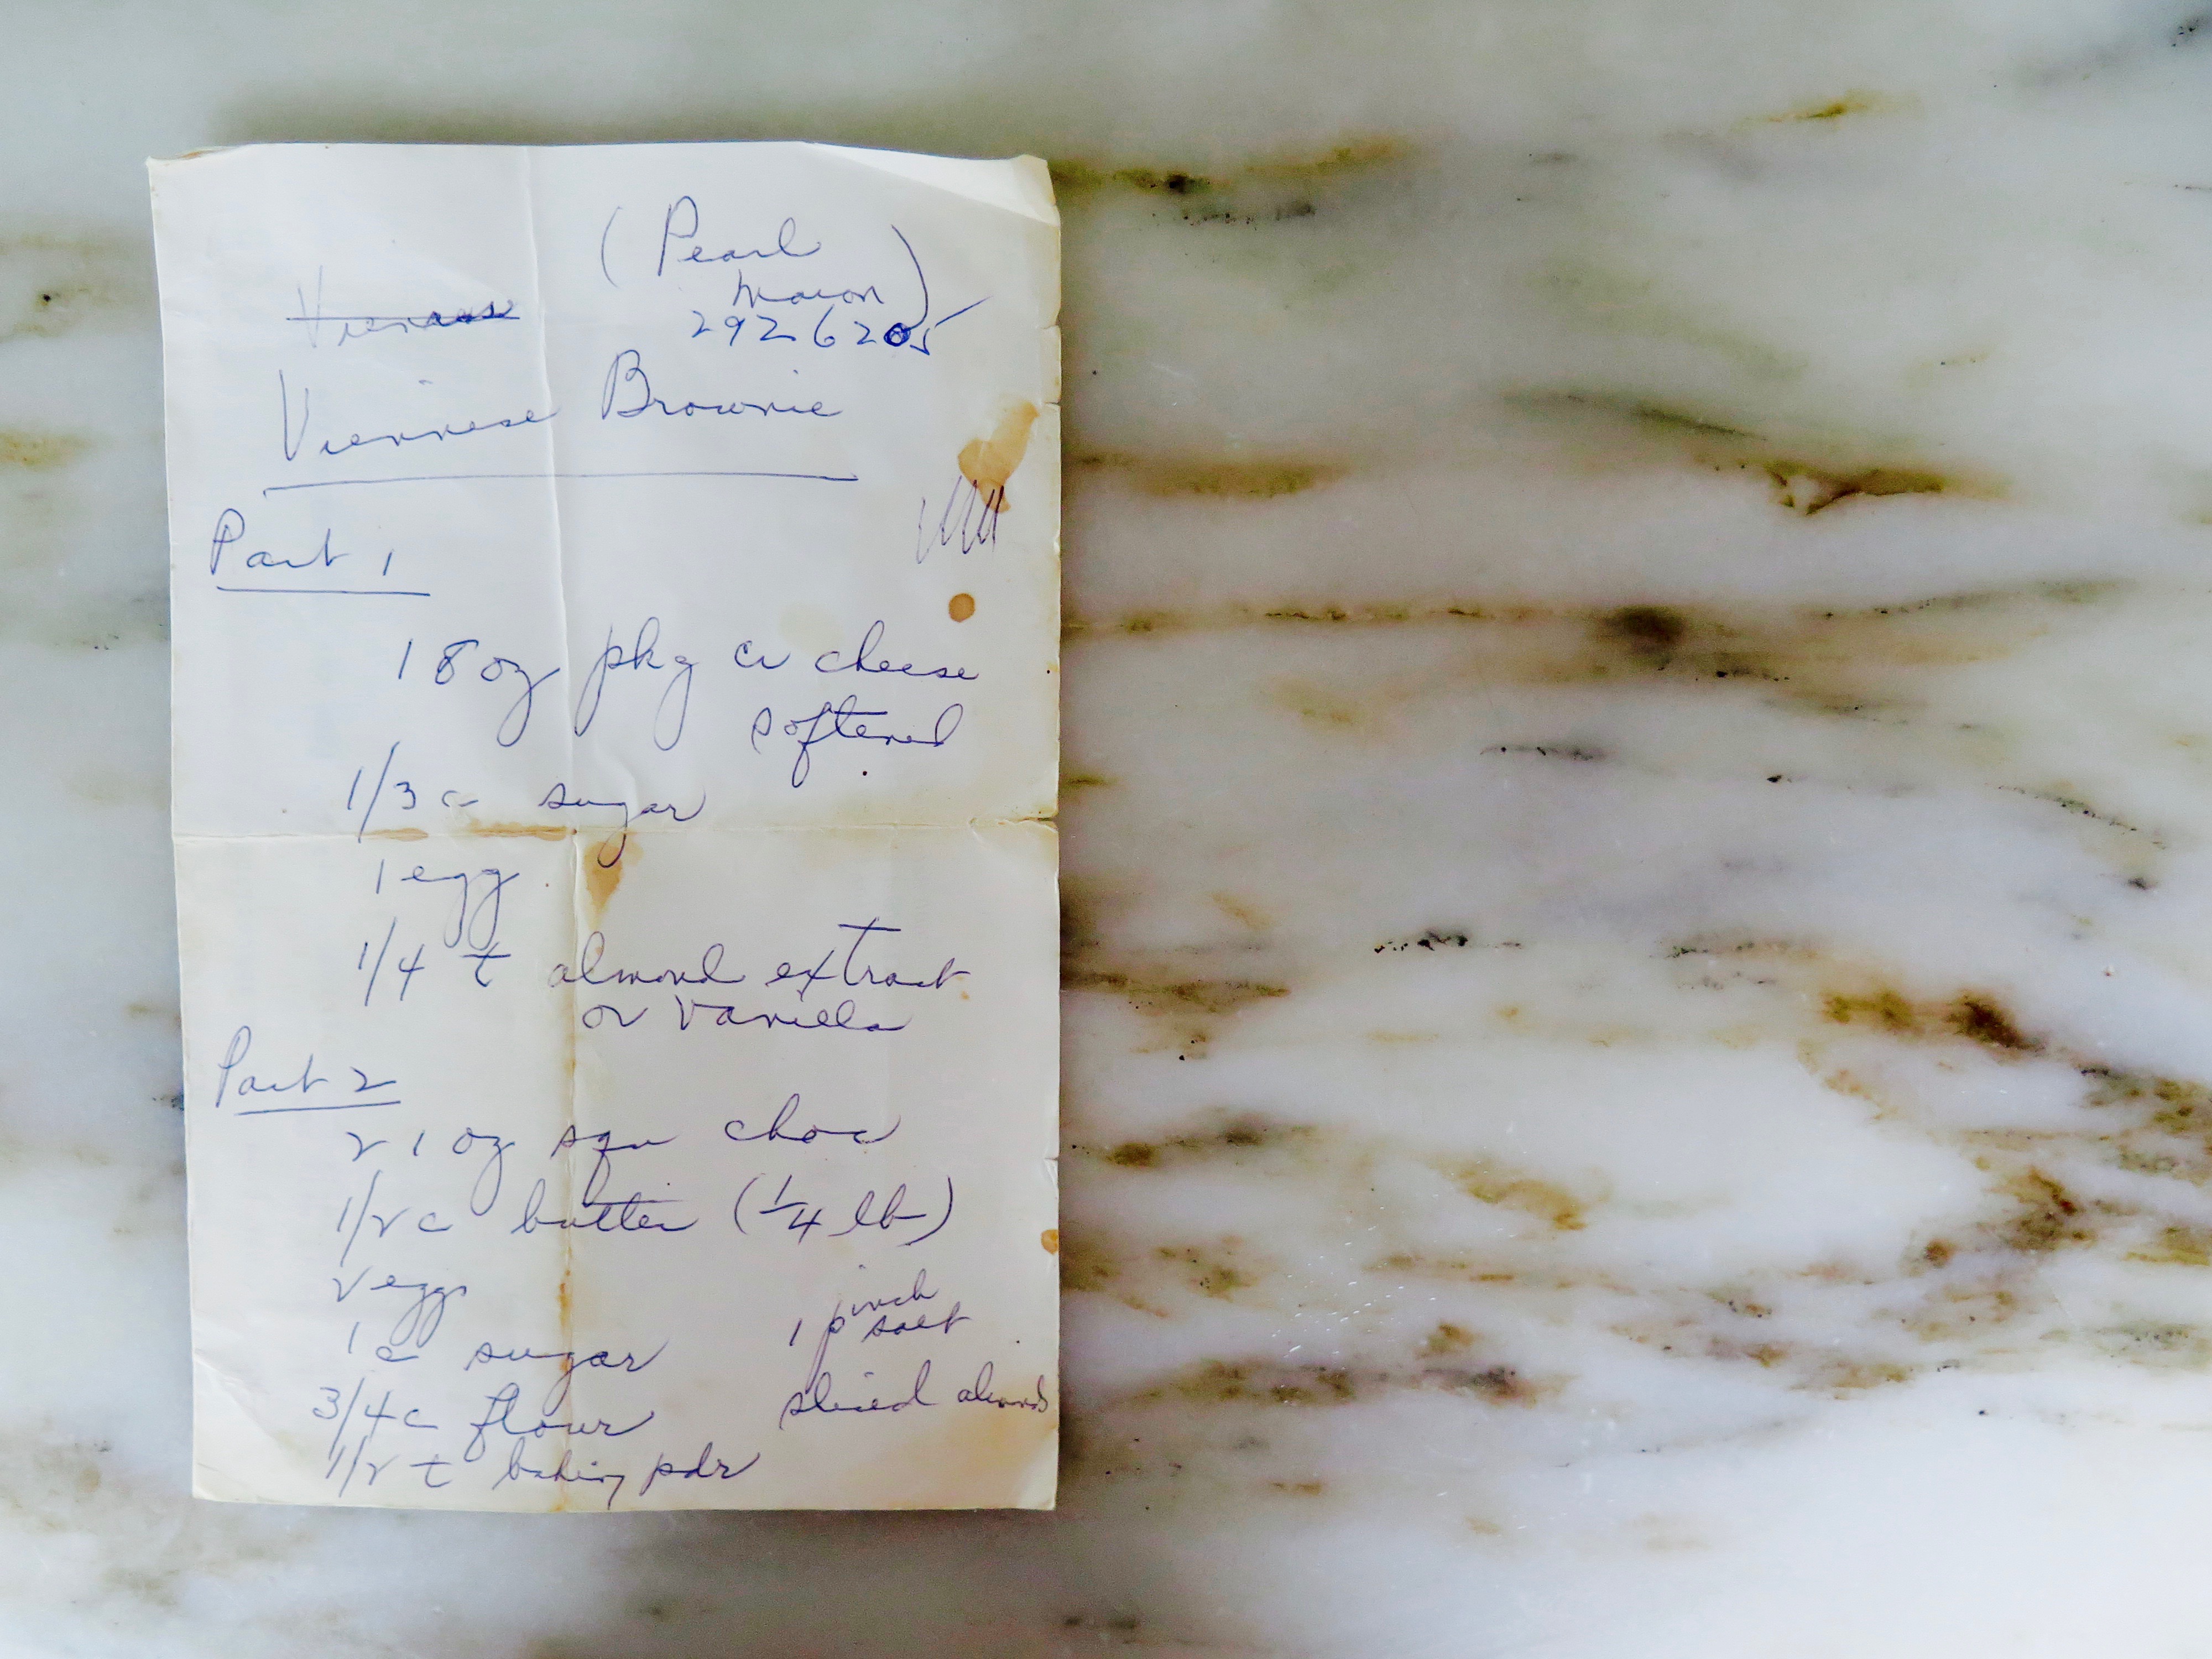 (Pearl
Macon)
292 6205
Viennese Brownie
Part 1
1 8 oz pkg cr cheese
softened
1/3 c sugar
1 egg
1/4 t almond extract
or vanilla
Part 2
2 1 oz squ choc
1/2 c butter (1/4 lb)
2 eggs
1 pinch
salt
1 c sugar
sliced almonds
3/4 c flour
1/2 t baking pdr